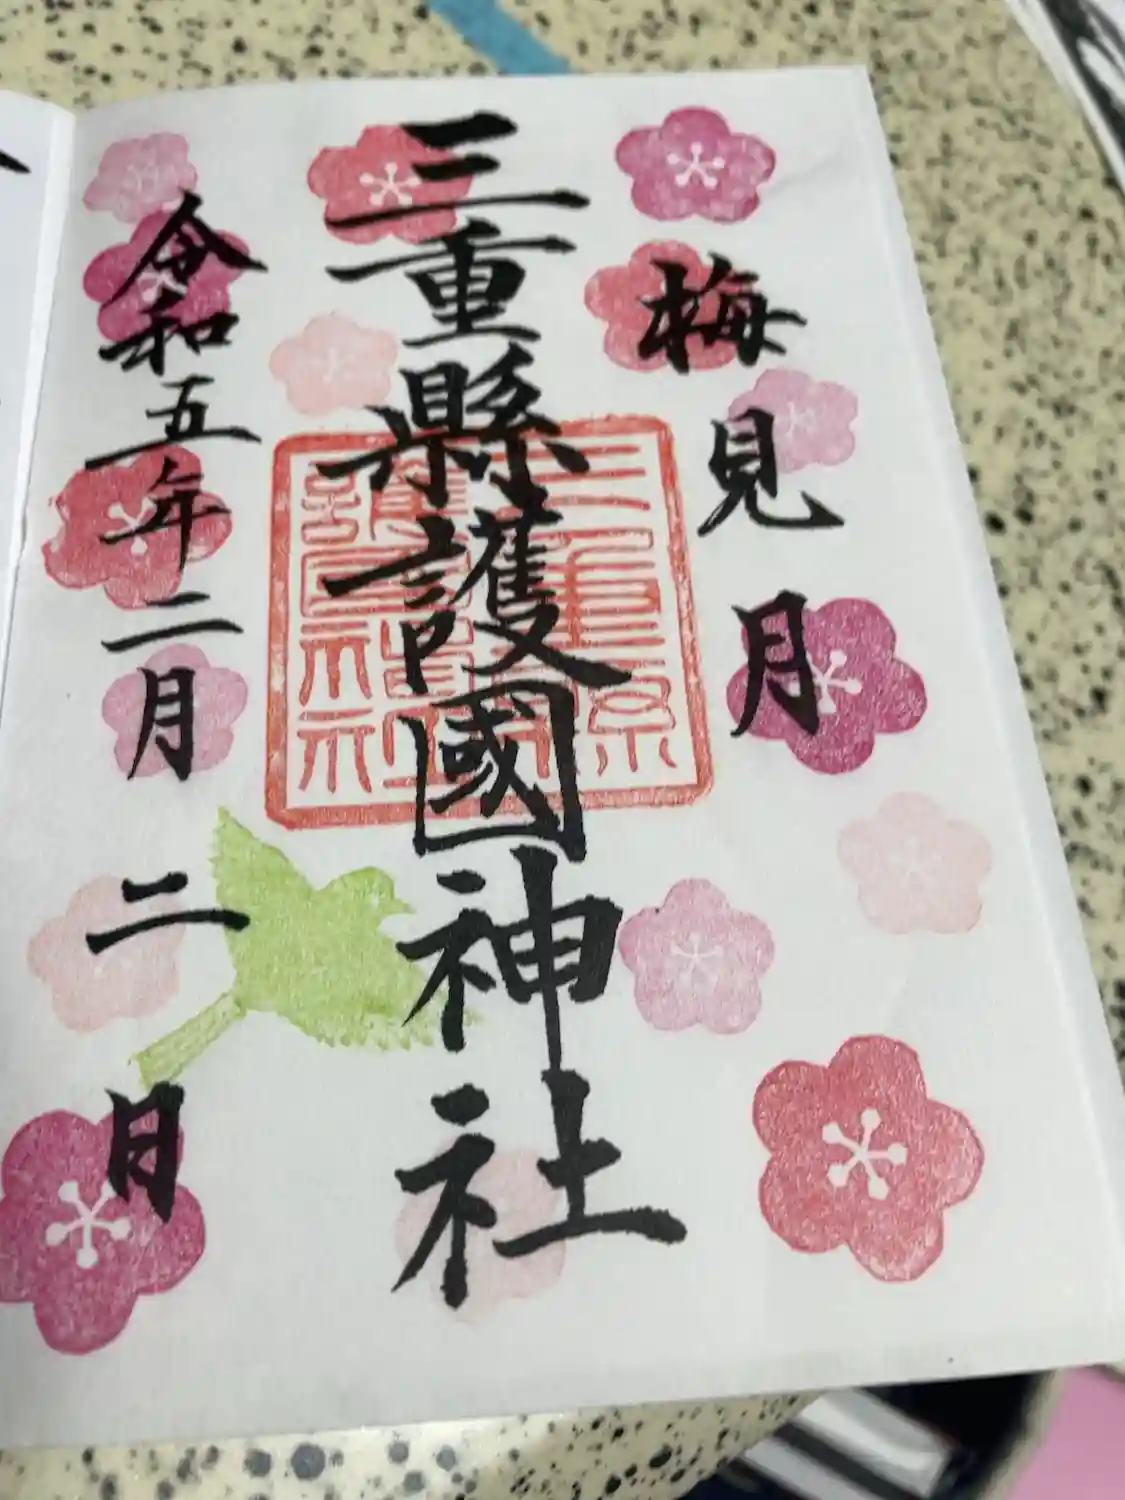 梅見月
三重縣護國神社
三重縣護國神社
令和五年二月二日